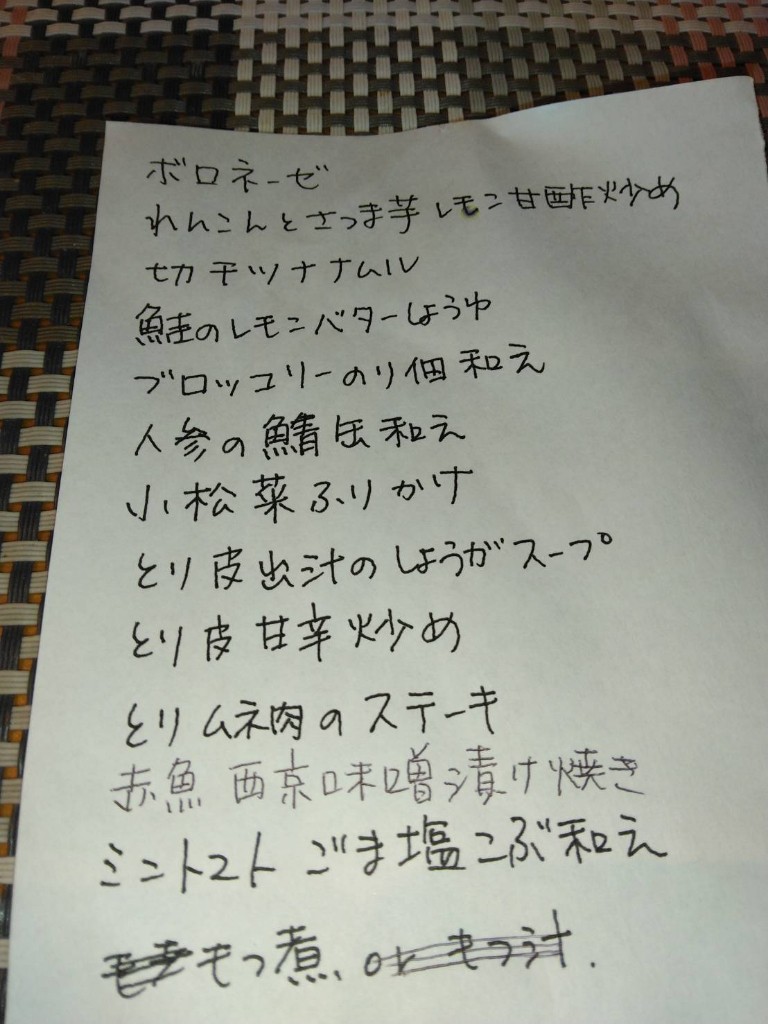 ボロネーゼ
れんこんとさつま芋 レモン甘酢炒め
切干ツナナムル
鮭のレモンバターしょうゆ
ブロッコリーのり佃和え
人参の鯖缶和え
小松菜ふりかけ
とり皮出汁のしょうがスープ
とり皮甘辛炒め
とりムネ肉のステーキ
赤魚 西京味噌漬け焼き
ミニトマト ごま塩こぶ和え
もつ煮、or もつ汁.